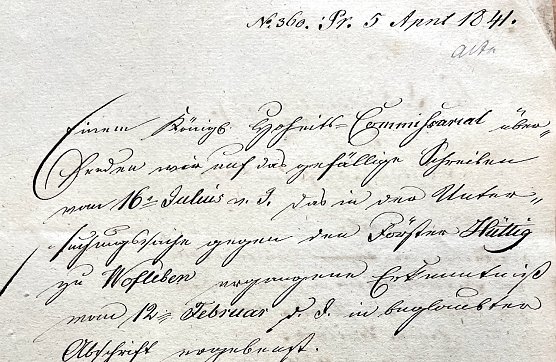 No. 360. Pr. 5 April 1841.
Acta
Einem Königl. Hoheits-Commissariat über-
senden wir auf das gefällige Schreiben
vom 16n Julius v. J. das in der Unter-
suchungssache gegen den Förster Hüllig
zu Wofleben ergangene Erkenntniß
vom 12n Februar d. J. in beglaubter
Abschrift ergebenst.